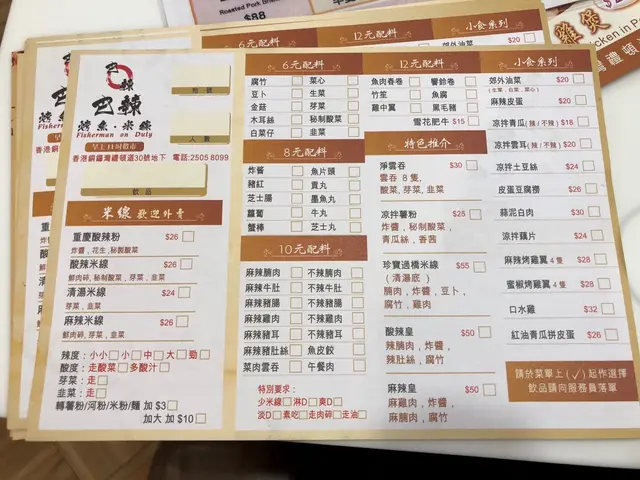 Roasted Pork
$88
6元配料
12元配料
小食系列
郊外油菜
巴辣
烤魚·米線
Fisherman on Duty
早上11時啟市
香港銅鑼灣禮頓道30號地下 電話:2505 8099
人數
飲品
米線 歡迎外賣
重慶酸辣粉 $26
炸醬,花生,秘製酸菜
酸辣米線 $26
鮮肉碎,秘製酸菜,芽菜,韭菜
清湯米線 $24
芽菜,韭菜
麻辣米線 $26
鮮肉碎,芽菜,韭菜
辣度:小小 小 中 大 勁
酸度:走酸菜 多酸汁
芽菜:走
韭菜:走
轉薯粉/河粉/米粉/麵 加 $3
加大 加 $10
6元配料
腐竹 菜心
豆卜 生菜
金菇 芽菜
木耳絲 秘制酸菜
白菜仔 韭菜
8元配料
炸醬 魚片頭
豬紅 貢丸
芝士腸 墨魚丸
蘿蔔 牛丸
蟹棒 芝士丸
10元配料
麻辣腩肉 不辣腩肉
麻辣牛肚 不辣牛肚
麻辣豬腸 不辣豬腸
麻辣雞肉 不辣雞肉
麻辣豬耳 不辣豬耳
麻辣豬肚絲 魚皮餃
菜肉雲吞 午餐肉
特別要求:
少米線 淋D 爽D
淡D 素吃 走肉碎 走油
12元配料
魚肉春卷 響鈴卷
竹笙 魚腐
雞中翼 黑毛豬
雪花肥牛 $15
特色推介
淨雲吞 $30
雲吞 8 隻,
酸菜,芽菜,韭菜
涼拌薯粉 $25
炸醬,秘制酸菜,
青瓜絲,香茜
珍寶過橋米線 $55
(清湯底)
腩肉,炸醬,豆卜,
腐竹,雞肉
酸辣皇 $50
辣腩肉,炸醬,
辣肚絲,腐竹
麻辣皇 $50
麻雞肉,炸醬,
麻腩肉,腐竹
小食系列
郊外油菜 $20
(生菜,白菜,菜心)
麻辣皮蛋 $20
涼拌青瓜(辣/不辣) $18
涼拌雲耳(辣/不辣) $20
涼拌土豆絲 $24
皮蛋豆腐撈 $26
蒜泥白肉 $26
涼拌藕片 $24
麻辣烤雞翼 4 隻 $28
蜜椒烤雞翼 4 隻 $28
口水雞 $32
紅油青瓜拼皮蛋 $26
請於菜單上 (✓) 起作選擇
飲品請向服務員落單